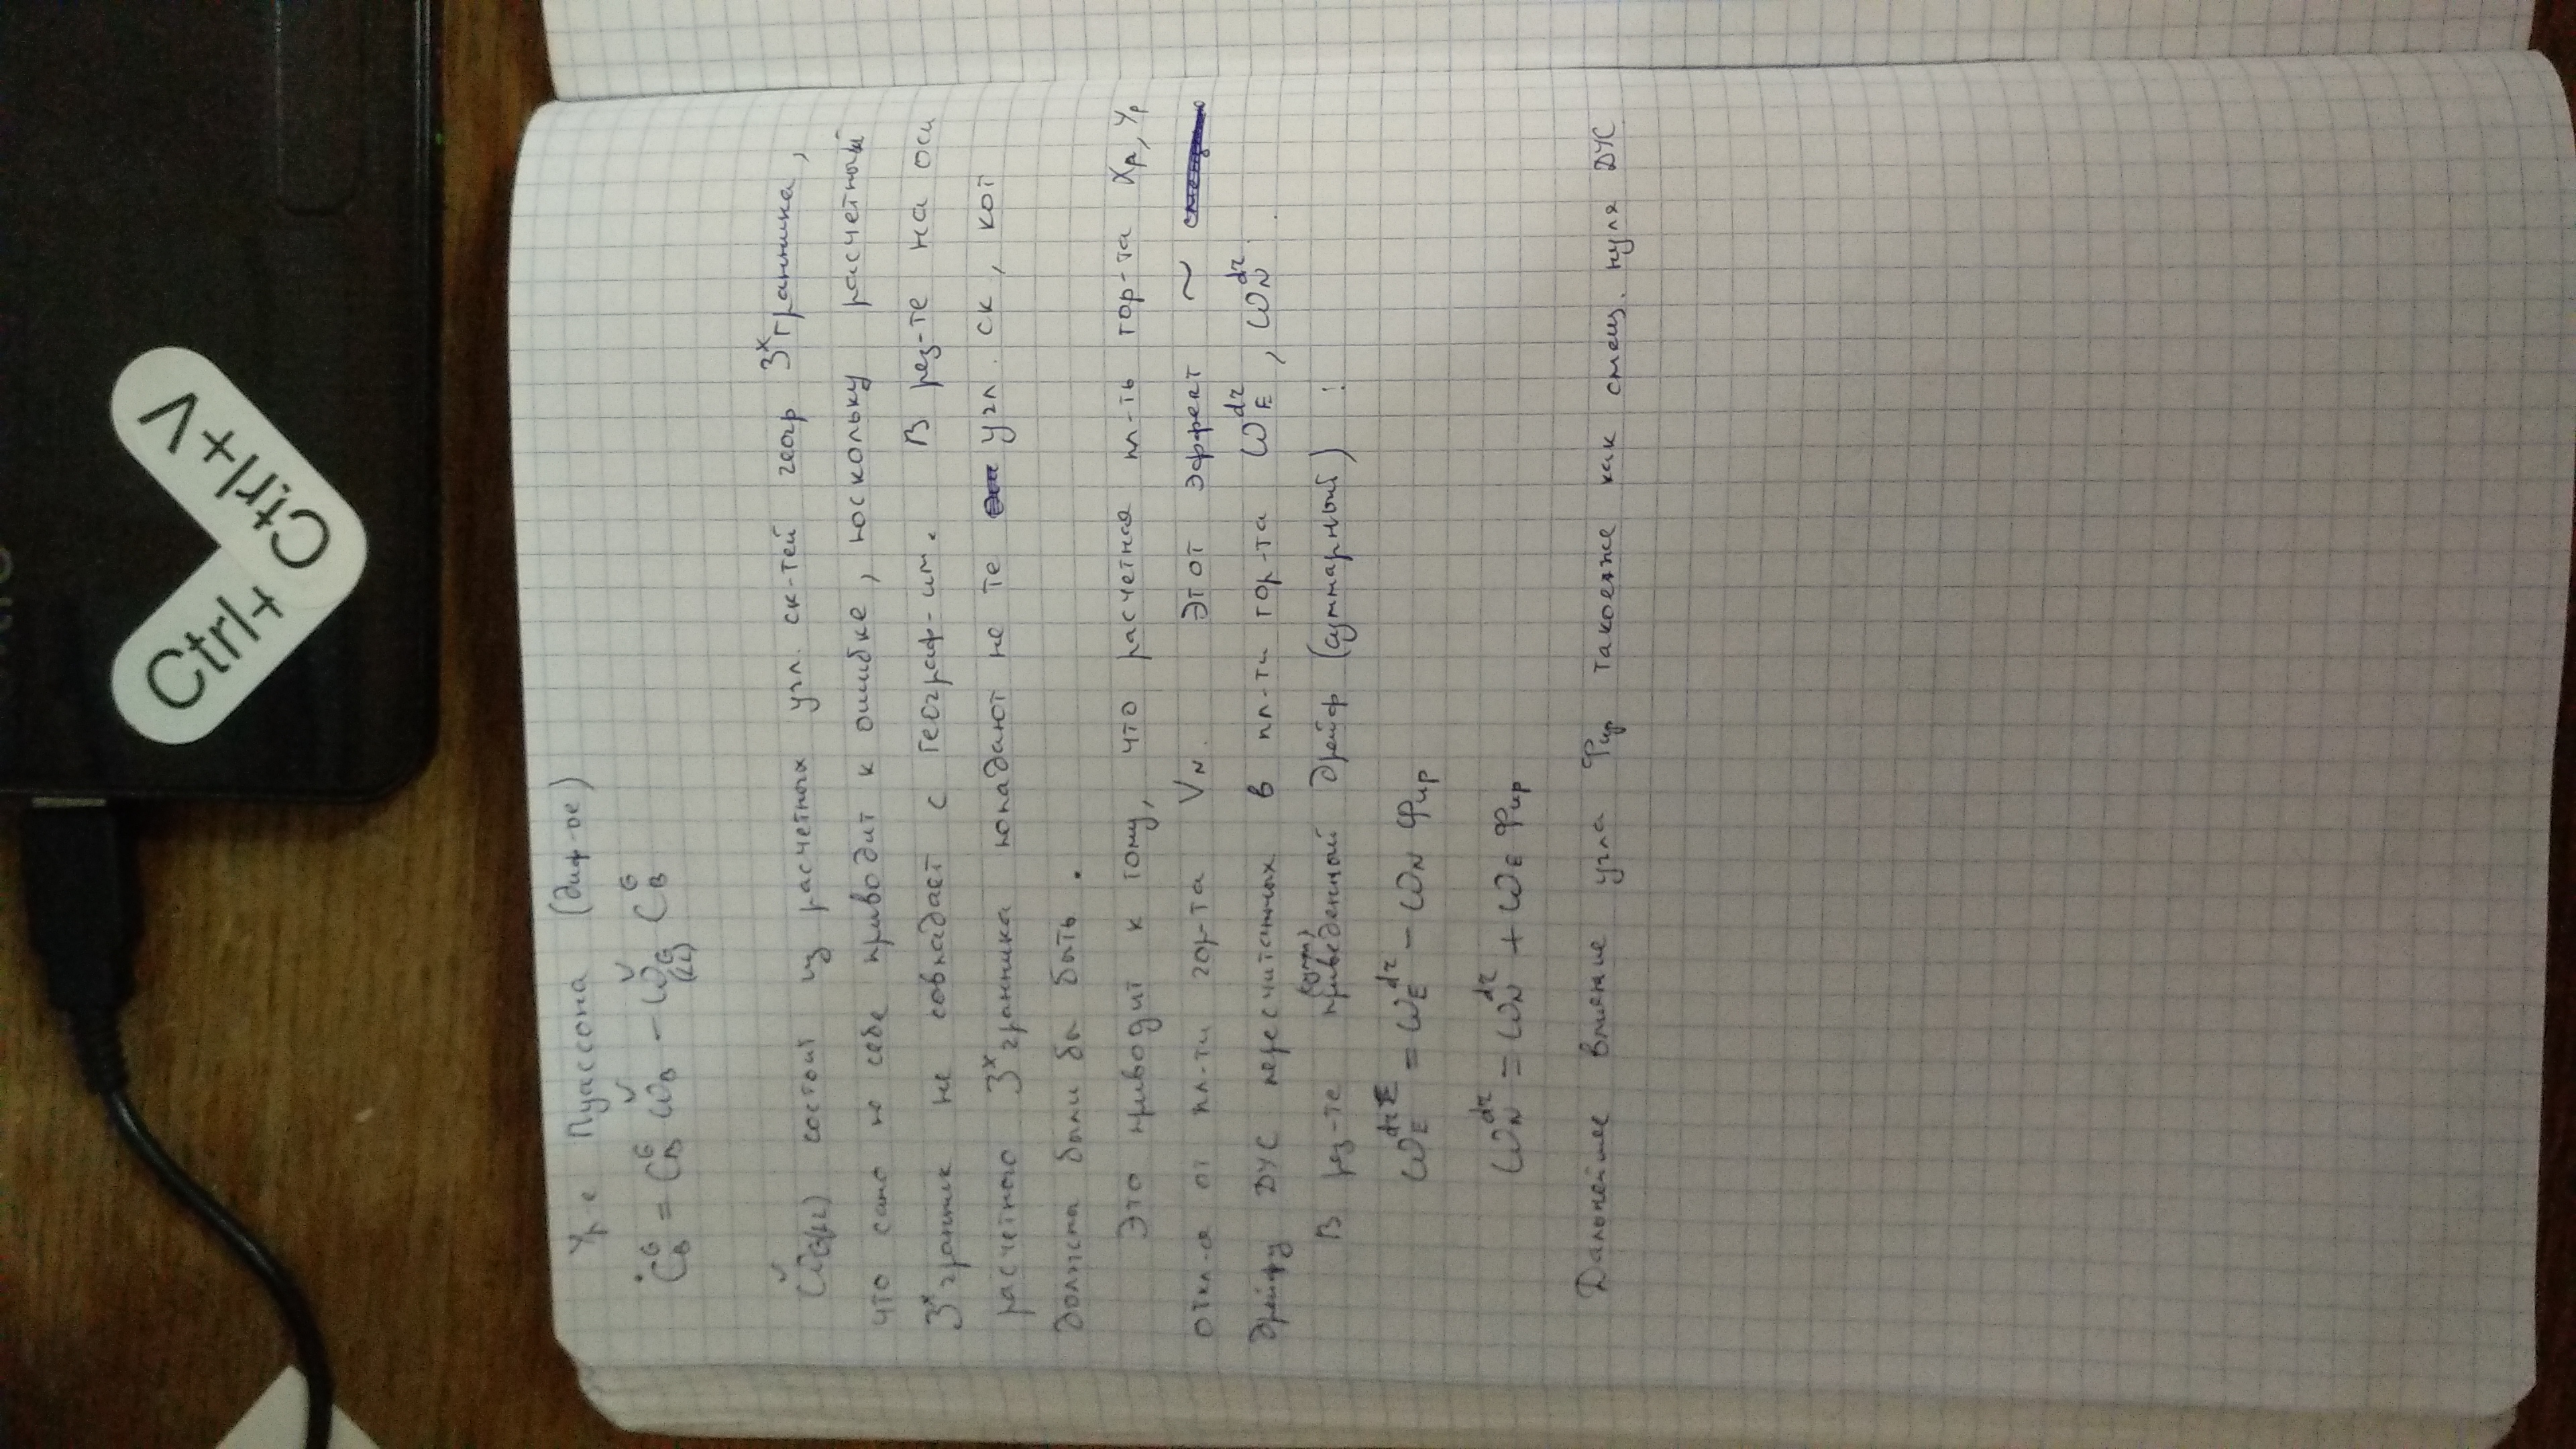 Ctrl+C
Ctrl+V
Ур-е Пуассона (диф-ое)
Ċ_B^G = C_B^G ω̌_B − ω̌_(к)^G C_B^G
состоит из расчетных угл. ск-тей геогр 3^х гранника,
что само по себе приводит к ошибке, поскольку расчетный
3^х гранник не совпадает с географ-им. В рез-те на оси
расчетного 3^х гранника попадают не те угл. ск, кот
должны были бы быть.
Это приводит к тому, что расчетная пл-ть гор-та Xр, Yр
откл-я от пл-ти гор-та V_N. Этот эффект ~
дрейфу ДУС пересчитанных в пл-ти гор-та ω_E^dr, ω_N^dr.
В рез-те приведенный дрейф (суммарный) :
ω_E^drΣ = ω_E^dr − ω_N Φир
ω_N^dr = ω_N^dr + ω_E Φир
Дальнейшее влияние угла Φир такоеже как смещ. нуля ДУС